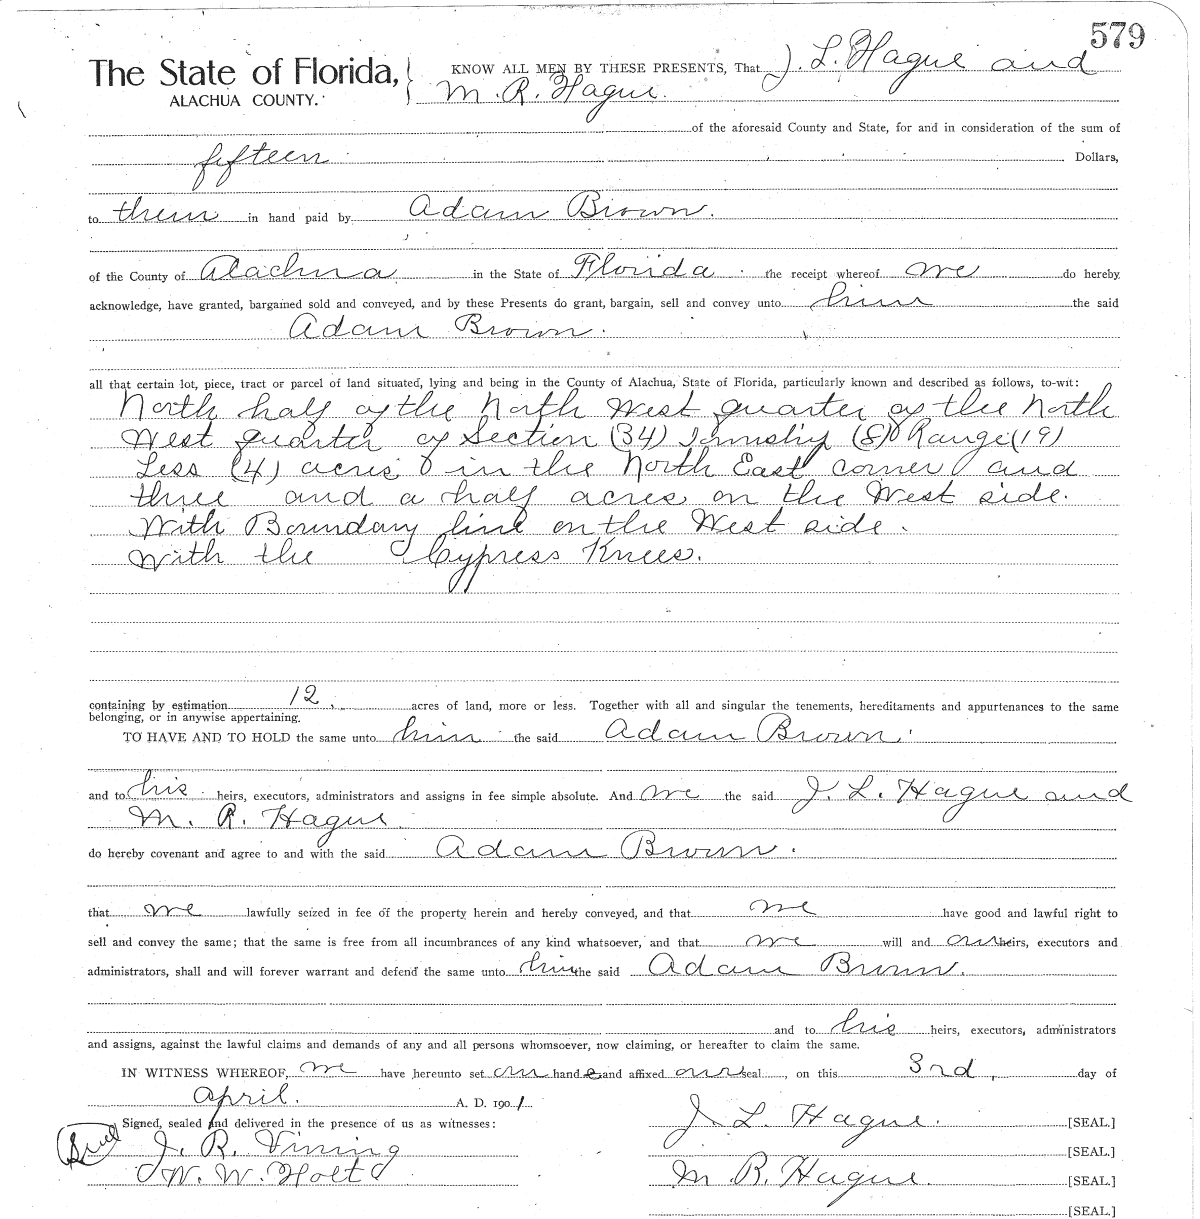 579
The State of Florida, KNOW ALL MEN BY THESE PRESENTS, That J. L. Hague and
ALACHUA COUNTY. M. R. Hague.
of the aforesaid County and State, for and in consideration of the sum of
fifteen Dollars,
to them in hand paid by Adam Brown.
of the County of Alachua in the State of Florida the receipt whereof we do hereby
acknowledge, have granted, bargained sold and conveyed, and by these Presents do grant, bargain, sell and convey unto him the said
Adam Brown.
all that certain lot, piece, tract or parcel of land situated, lying and being in the County of Alachua, State of Florida, particularly known and described as follows, to-wit:
North half of the North West quarter of the North
West quarter of Section (34) Township (8) Range (19)
Less (4) acres in the North East corner and
three and a half acres on the West side.
With Boundary line on the West side.
With the Cypress Knees.
containing by estimation 12, acres of land, more or less. Together with all and singular the tenements, hereditaments and appurtenances to the same
belonging, or in anywise appertaining.
TO HAVE AND TO HOLD the same unto him the said Adam Brown.
and to his heirs, executors, administrators and assigns in fee simple absolute. And we the said J. L. Hague and
M. R. Hague
do hereby covenant and agree to and with the said Adam Brown.
that we lawfully seized in fee of the property herein and hereby conveyed, and that we have good and lawful right to
sell and convey the same; that the same is free from all incumbrances of any kind whatsoever, and that we will and our heirs, executors and
administrators, shall and will forever warrant and defend the same unto him the said Adam Brown.
and to his heirs, executors, administrators
and assigns, against the lawful claims and demands of any and all persons whomsoever, now claiming, or hereafter to claim the same.
IN WITNESS WHEREOF, we have hereunto set our hands and affixed our seal, on this 3rd, day of
April. A. D. 1901.
Signed, sealed and delivered in the presence of us as witnesses: J L Hague. [SEAL.]
Seal J. R. Vining [SEAL.]
W. W. Holt M R. Hague. [SEAL.]
[SEAL.]